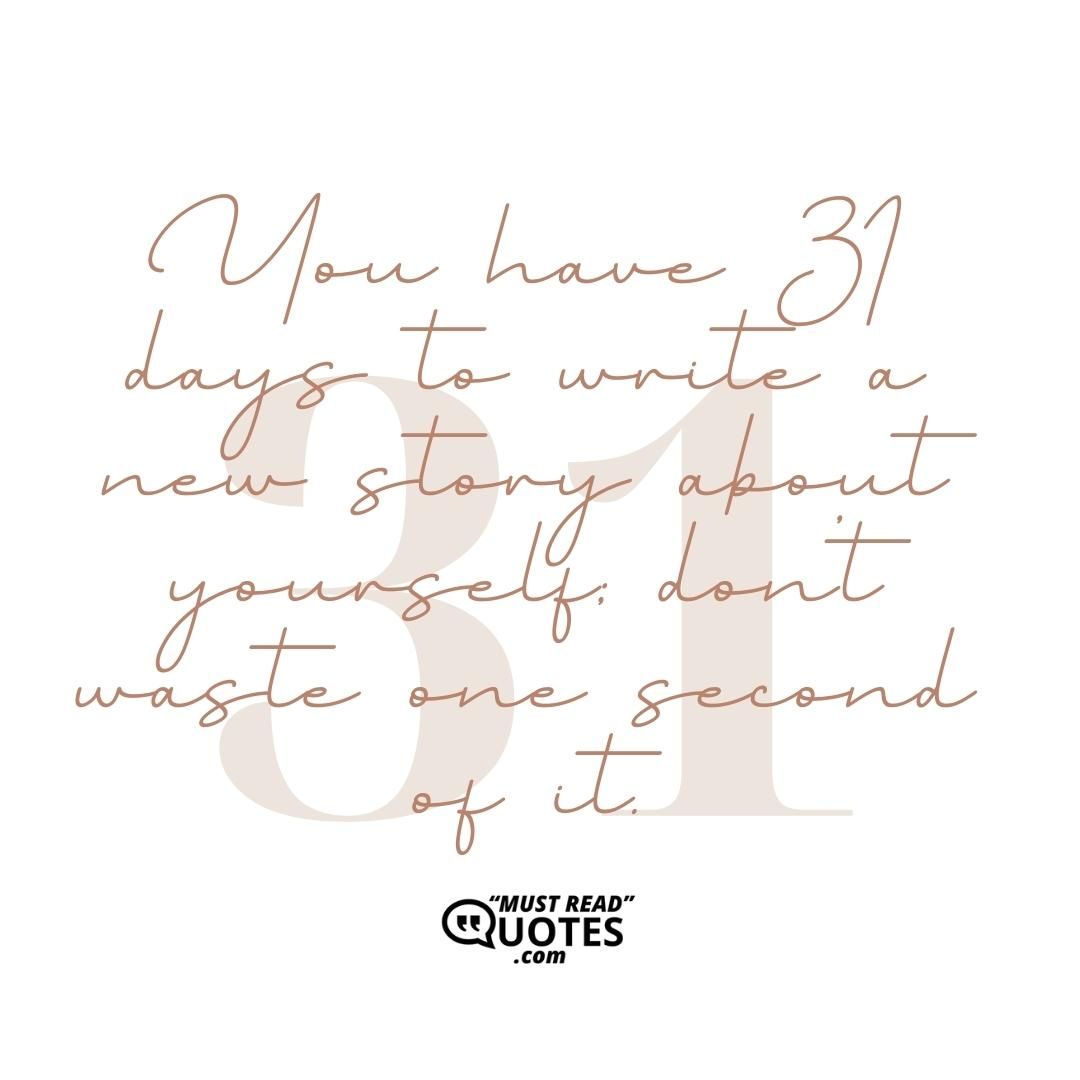 You have 31
days to write a
new story about
yourself; don't
waste one second
of it.
31
"MUST READ"
QUOTES
.com